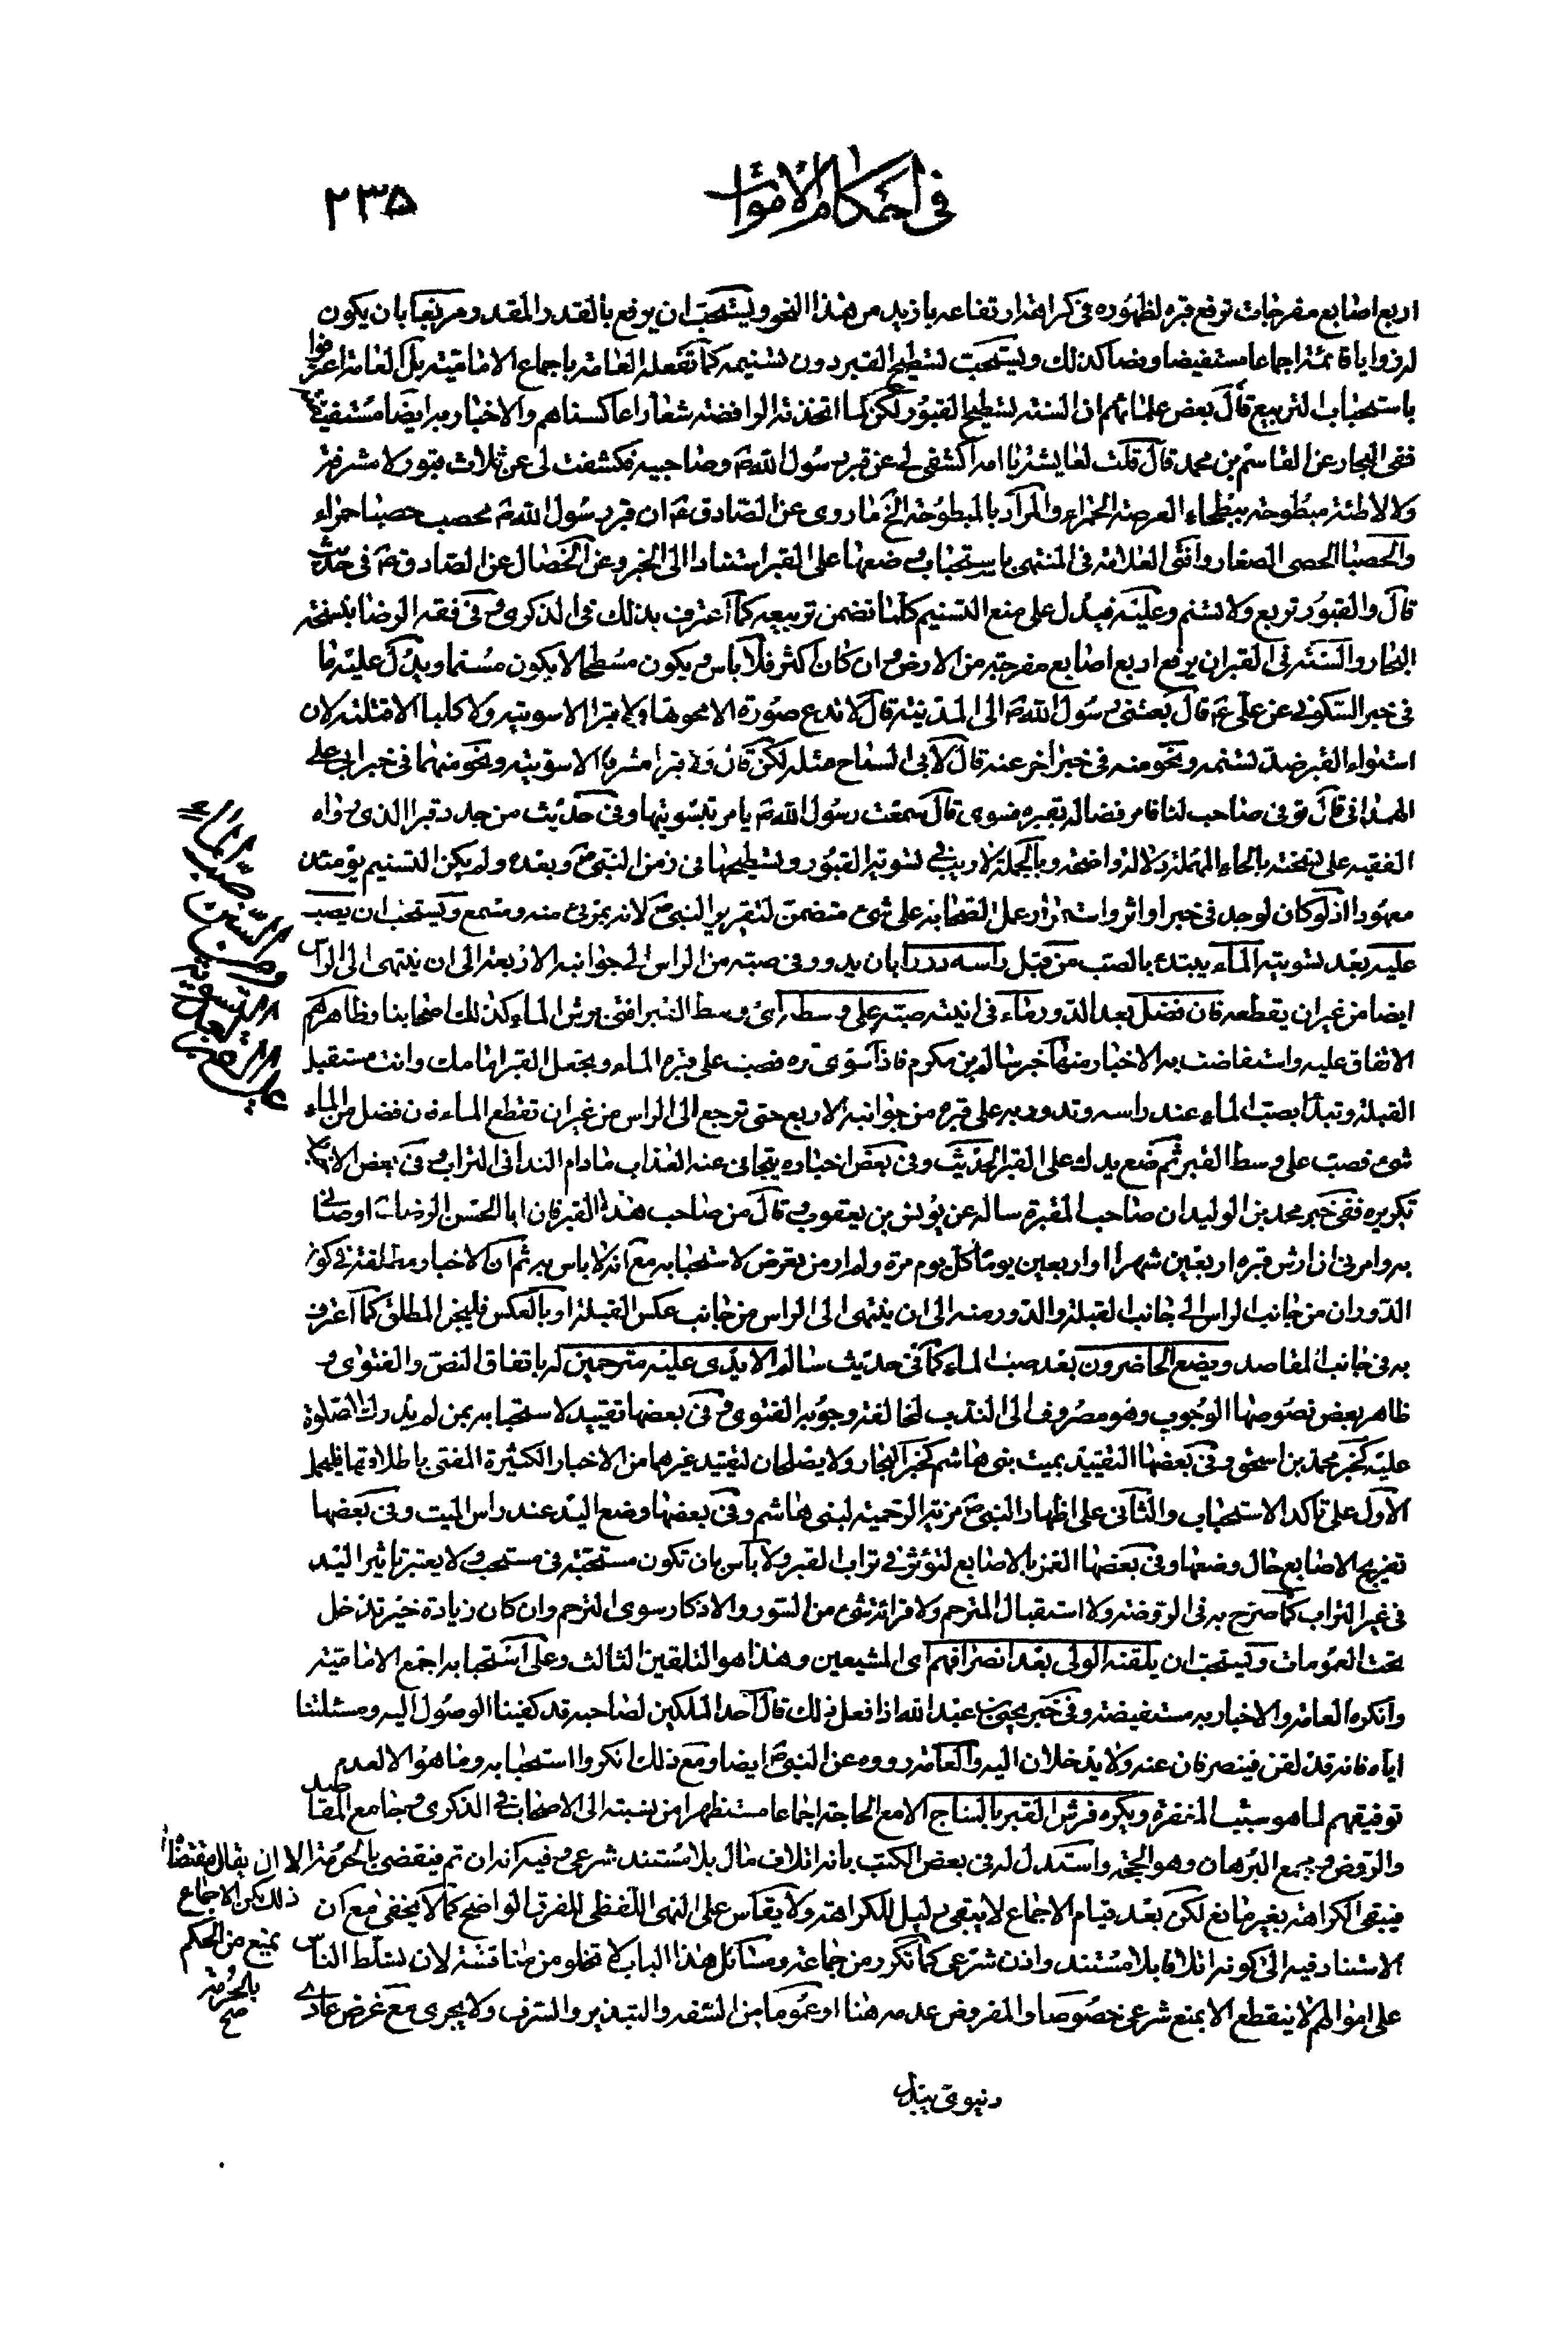 في احكام الاموات
٢٣٥
اربع اصابع مفرجات ترفع قبره لظهوره في كراهة ارتفاعه بازيد من هذا النحو ويستحب ان يرفع بالقدر المقدر ومربعا بان يكون
له زوايا قائمة اجماعا مستفيضا ونصا كذلك ويستحب تسطيح القبر دون تسنيمه كما تفعله العامة باجماع الامامية بل العامة اعترفوا
باستحباب التربيع قال بعض علمائهم ان السنة تسطيح القبور لكن لما اتخذته الرافضة شعارا عاكسناهم والاخبار به ايضا مستفيضة
ففي البحار عن القاسم بن محمد قال قلت لعايشة يا امه اكشفي لي عن قبر رسول الله ص وصاحبيه فكشفت لي عن ثلاث قبور لا مشرفة
ولا لاطئة مبطوحة ببطحاء العرصة الحمراء والمراد بالمبطوحة الخ ما روى عن الصادق ع ان قبر رسول الله ص محصب حصبا حمراء
والحصبا الحصى الصغار وافتى العلامة في المنتهى باستحباب وضعها على القبر استنادا الى الخبر وعن الخصال عن الصادق ع في حديث
قال والقبور تربع ولا تسنم وعليه فيدل على منع التسنيم كلما تضمن تربيعه كما اعترف بذلك في الذكرى وفي فقه الرضا بنسخة
البحار والسنة في القبر ان يرفع اربع اصابع مفرجة من الارض وان كان اكثر فلا باس ويكون مسطحا لا يكون مسنما ويدل عليه ما
في خبر السكوني عن علي ع قال بعثني رسول الله ص الى المدينة قال لا تدع صورة الا محوتها ولا قبرا الا سويته ولا كلبا الا قتلته لان
استواء القبر ضد تسنمه ونحو منه في خبر اخر عنه قال لابي السماح مثله لكن قال ولا قبرا مشرفا الا سويته ونحو منهما في خبر ابي علي
الهمداني قال توفي صاحب لنا فامر فضالة بقبره فسوى قال سمعت رسول الله ص يامر بتسويتها وفي حديث من جدد قبرا الذي رواه
الفقيه على نسخته بالحاء المهملة دلالة واضحة وبالجملة لا ريب في تسوية القبور وتسطيحها في زمن النبي ص وبعده ولم يكن التسنيم يومئذ
معهودا اذ لو كان لوجد في خبر او اثر واستمرار عمل الصحابة على شيء متضمن لتقرير النبي ص لانه بمرئ منه ومسمع ويستحب ان يصب
عليه بعد تسويته الماء يبتدء بالصب من قبل راسه دورا بان يدور في صبه من الراس الى جوانبه الاربعة الى ان ينتهى الى الراس
ايضا من غير ان يقطعه فان فضل بعد الدور ماء في انيته صبه على وسطه اى وسط القبر افتى برش الماء كذلك اصحابنا وظاهرهم
الاتفاق عليه واستفاضت به الاخبار منها خبر سالم بن مكرم فاذا سوى قبره فصب على قبره الماء وتجعل القبر امامك وانت مستقبل
القبلة وتبدا بصب الماء عند راسه وتدور به على قبره من جوانبه الاربع حتى ترجع الى الراس من غير ان تقطع الماء فان فضل من الماء
شيء فصب على وسط القبر ثم ضع يدك على القبر الحديث وفي بعض اخباره يتجافى عنه العذاب ما دام الندا في التراب وفي بعض الاخبار
تكريره ففي خبر محمد بن الوليد ان صاحب المقبرة ساله عن يونس بن يعقوب قال من صاحب هذا القبر فان ابا الحسن الرضا ع اوصاني
به وامرني ان ارش قبره اربعين شهرا او اربعين يوما كل يوم مرة ولم ار من تعرض لاستحبابه مع انه لا باس به ثم ان الاخبار مطلقة في كون
الدوران من جانب الراس الى جانب القبلة والدور منه الى ان ينتهى الى الراس من جانب عكس القبلة او بالعكس فليجز المطلق كما اعترف
به في جانب المقاصد ويضع الحاضرون بعد صب الماء كما في حديث سالم الايدي عليه مترحمين له باتفاق النص والفتوى و
ظاهر بعض نصوصها الوجوب وهو مصروف الى الندب لمخالفة وجوبه الفتوى وفي بعضها تقييد لاستحبابه بمن لم يدرك الصلوة
عليه كخبر محمد بن اسحق وفي بعضها التقييد بميت بني هاشم كخبر البحار ولا يصلحان لتقييد غيرهما من الاخبار الكثيرة المفتى باطلاقها فليحمل
الاول على تاكد الاستحباب والثاني على اظهار النبي ص مزية الرحمية لبني هاشم وفي بعضها وضع اليد عند راس الميت وفي بعضها
تفريج الاصابع حال وضعها وفي بعضها الغمز بالاصابع لتؤثر في تراب القبر ولا باس بان تكون مستحبة في مستحب ولا يعتبر تاثير اليد
في غير التراب كما صرح به في الروضة ولا استقبال المترحم ولا قرائة شيء من السور والاذكار سوى الترحم وان كان زيادة خير تدخل
تحت العمومات ويستحب ان يلقنه الولى بعد انصرافهم اى المشيعين وهذا هو التلقين الثالث وعلى استحبابه اجمع الامامية
وانكره العامة والاخبار به مستفيضة وفي خبر يحيى بن عبد الله اذا فعل ذلك قال احد الملكين لصاحبه قد كفينا الوصول اليه ومسئلتنا
اياه فانه قد لقن فينصرفان عنه ولا يدخلان اليه والعامة رووه عن النبي ص ايضا ومع ذلك انكروا استحبابه وما هو الا لعدم
توفيقهم لما هو سبب المغفرة ويكره فرش القبر بالساج الا مع الحاجة اجماعا مستظهرا من نسبته الى الاصحاب في الذكرى وجامع المقاصد
والروض ومجمع البرهان وهو الحجة واستدل له في بعض الكتب بانه اتلاف مال بلا مستند شرعي وفيه انه ان تم فيقضى بالحرمة الا ان يقال مقتضاه
ذلك لكن الاجماع
يمنع من الحكم
بالحرمة
صح
فيبقى الكراهة بغير مانع لكن بعد قيام الاجماع لا يبقى دليل للكراهة ولا يقاس على النهى اللفظي للفرق الواضح كما لا يخفى مع ان
الاستناد فيه الى كونه اتلافا بلا مستند واذن شرعي كما تكرر من جماعة ومسائل هذا الباب لا تخلو من مناقشة لان تسلط الناس
على اموالهم لا ينقطع الا بمنع شرعي خصوصا والمفروض عدمه هنا او عموما من السفه والتبذير والسرف ولا يجرى مع غرض عادي
دنيوي يبذل